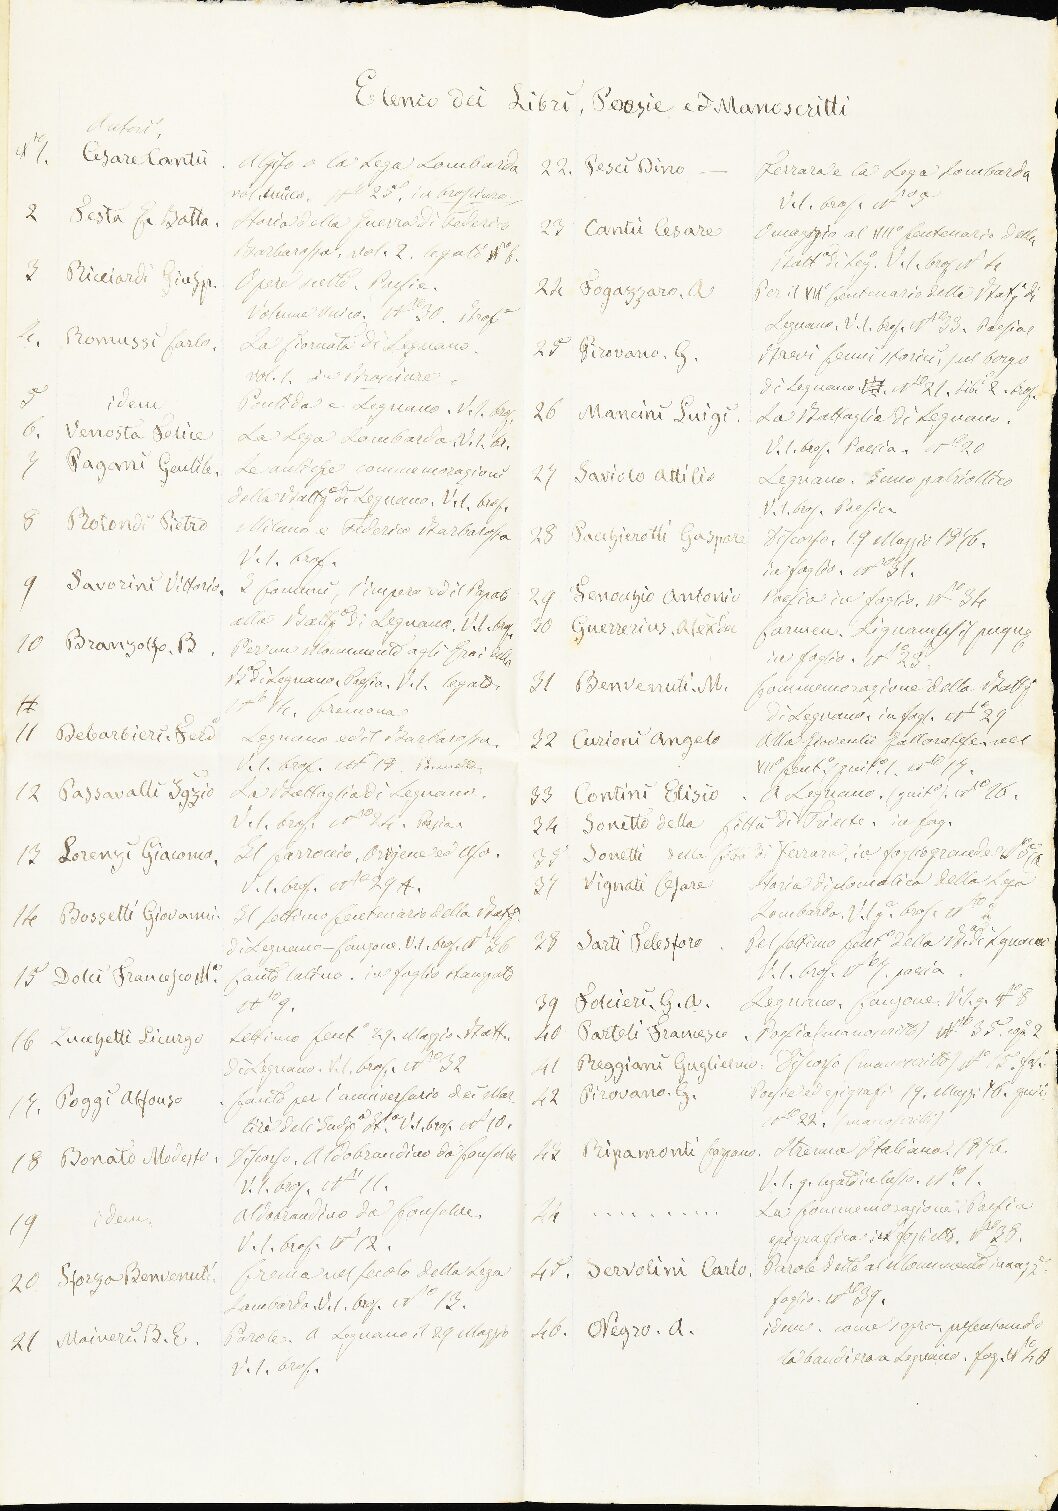 Elenco dei Libri, Poesie ed Manoscritti
Autori.
N° 1. Cesare Cantù. Algiso o la Lega Lombarda
vol. unico. N° 25. in brossura
2 Testa G. Batta. Storia della guerra di Federico
Barbarossa. vol. 2. legati N° 6.
3 Ricciardi Giusp. Opere scelte. Poesie.
Volume unico. N° 30. Bros
4. Romussi Carlo. La Giornata di Legnano.
vol. 1. in Brossure.
5 idem Pontida e Legnano. V. 1. bros.
6. Venosta Felice La Lega Lombarda. V. 1. br.
7 Pagani Gentile. Le antiche commemorazioni
della Batt di Legnano. V. 1. bros.
8 Rotondi Pietro Milano e Federico Barbarossa
V. 1. bros.
9 Savorini Vittorio. I Comuni, l'impero ed il Papato
alla Batt di Legnano. V. 1. bros.
10 Branzolfo. B. Per un Monumento agli Eroi della
B di Legnano. Poesia. V. 1. legato.
N° 14. Cremona
11 Debarbieri. Ferd Legnano ed il Barbarossa.
V. 1. bros. N° 17.
12 Passavalli Igzio La Battaglia di Legnano.
V. 1. bros. N° 24. Poesia.
13 Lorenzi Giacomo. Il Carroccio, Origene ed Uso.
V. 1. bros. N° 29
14 Bossetti Giovanni. Il settimo Centenario della Batt
di Legnano - Canzone. V. 1. bros. N° 36
15 Dolci Francesco M. Canto latino. in foglio stampato
N° 9.
16 Zuchetti Licurgo Settimo Cent 29. Maggio. Batt.
di Legnano. V. 1. bros. N° 32
17. Poggi Alfonso. Canto per l'anniversario dei Mar
tiri V. 1. bros. N° 10.
18 Bonato Modesto. Discorso. Aldobrandino da Confelde
V. 1. bros. N° 11.
19 idem. Aldobrandino da Confelde.
V. 1. bros. N° 12.
20 Sforza Benvenuti. Crema nel secolo della Lega
Lombarda. V. 1. bros. N° 13.
21 Maineri. B. E. Parole. A Legnano il 29 Maggio
V. 1. bros.
22. Pesci Dino — Ferrara e la Lega Lombarda
V. 1. bros. N° 5
23 Cantù Cesare Omaggio al VII° Centenario della
Batt di Leg. V. 1. bros N° 4
24 Fogazzaro. A Per il VII° Centenario della Batt di
Legnano. V. 1. bros. N° 33. Poesia
25 Pirovano. G. Brevi Cenni storici, sul borgo
di Legnano. N° 21. bros.
26 Mancini Luigi. La Battaglia di Legnano.
V. 1. bros. Poesia. N° 20
27 Saviolo Attilio Legnano. Inno patriottico
V. 1. bros. Poesia
28 Pacchierotti Gaspare Discorso. 29 Maggio 1876.
in foglio. N° 31.
29 Antonio Poesia in foglio. N° 34
30 Guerrerius Carmen. pugna
in foglio. N° 28.
31 Benvenuti. M. Commemorazione della Batt
di Legnano. in fogl. N° 29
32 Curioni Angelo Alla Gioventù Gallaratese nel
VII° Cent. N° 17.
33 Contini Elisio. A Legnano. N° 26.
34 Sonetto della Città di Trieste. in fog.
35 Sonetti della Città di Ferrara, in foglio grande
37 Vignati Cesare Storia diplomatica della Lega
Lombarda. V. 1. bros. N°
38 Sarti Telesforo. Pel settimo Cent della B di Legnano
V. 1. bros. N° 7. poesia.
39 Folcieri. G. A. Legnano. Canzone. V. 1. g. N° 8
40 Bartoli Francesco. Poesia (manoscritto) N° 35. cop. 2
41 Reggiani Guglielmo. Discorso (manoscritto) N° 15.
42 Pirovano. G. Poesie ed epigrafi 29. Maggio 76.
N° 22. (manoscritto)
43 Ripamonti Strenna Italiana. 1876.
V. 1. g. legato in lusso. N° 1.
44 .......... La Commemorazione. Poesia
epigrafica in foglietto. N° 38.
45. Servolini Carlo. Parole dette al Monumento
foglio. N° 39.
46. Negro. A. idem. come sopra. presentando
la bandiera a Legnano. fog. N° 40